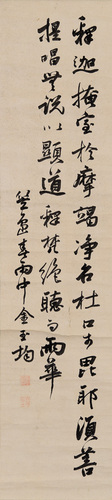 釋迦掩室於摩竭淨名杜口于毘耶須菩
提唱無說以顯道釋梵絕聽而雨華
金玉均